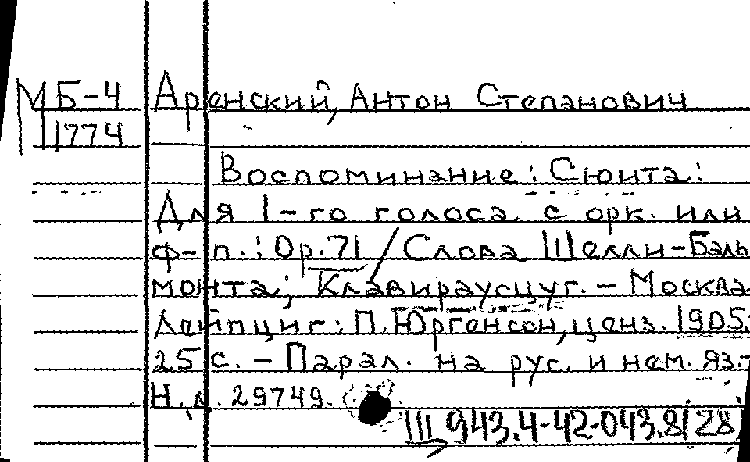 МБ-4 Аренский, Антон Степанович
11774
Воспоминание: Сюита:
Для 1-го голоса с орк. или
ф-п.: Op.71 / Слова Шелли-Баль
монта; Клавираусцуг. - Москва
Лейпциг: П. Юргенсон, ценз. 1905.
25 с. - Парал. на рус. и нем. яз.
Н.д. 29749.
Ш 943.4-42-043.8/28